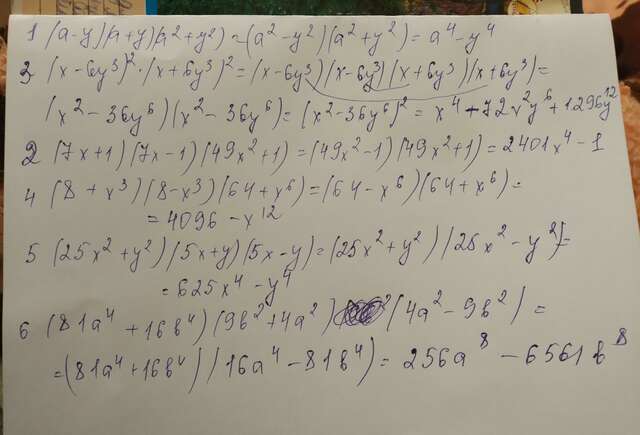 1 (a-y)(a+y)(a²+y²)=(a²-y²)(a²+y²)=a⁴-y⁴
3 (x-6y³)²·(x+6y³)²=(x-6y³)(x-6y³)(x+6y³)(x+6y³)=
(x²-36y⁶)(x²-36y⁶)=(x²-36y⁶)²=x⁴+72x²y⁶+1296y¹²
2 (7x+1)(7x-1)(49x²+1)=(49x²-1)(49x²+1)=2401x⁴-1
4 (8+x³)(8-x³)(64+x⁶)=(64-x⁶)(64+x⁶)=
=4096-x¹²
5 (25x²+y²)(5x+y)(5x-y)=(25x²+y²)(25x²-y²)=
=625x⁴-y⁴
6 (81a⁴+16b⁴)(9b²+4a²)(4a²-9b²)=
=(81a⁴+16b⁴)(16a⁴-81b⁴)=256a⁸-6561b⁸